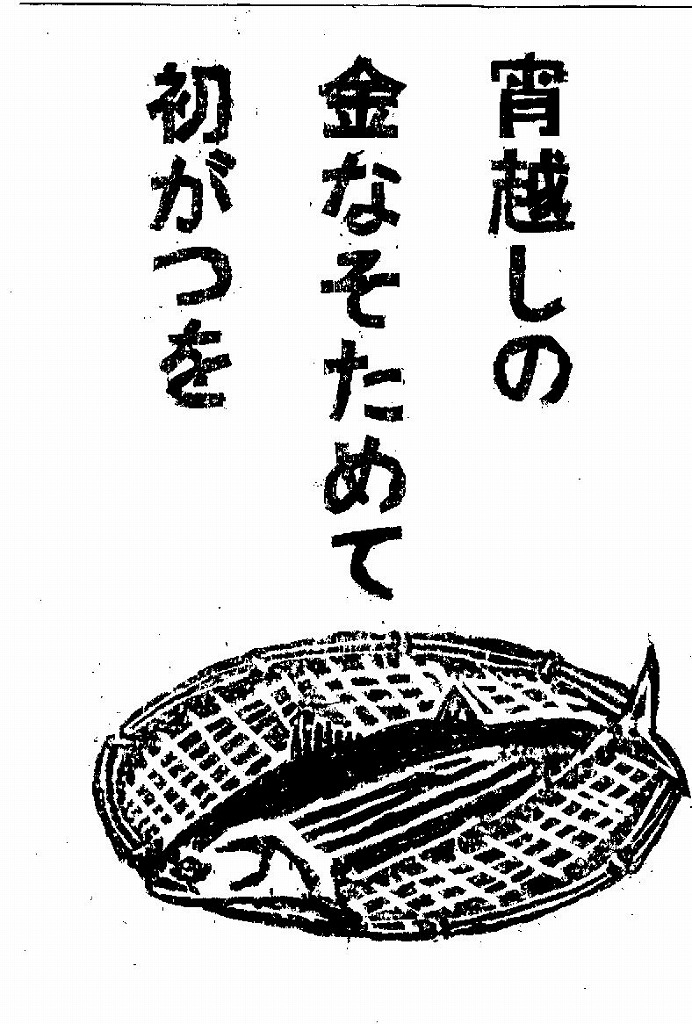 宵越しの
金なぞためて
初がつを